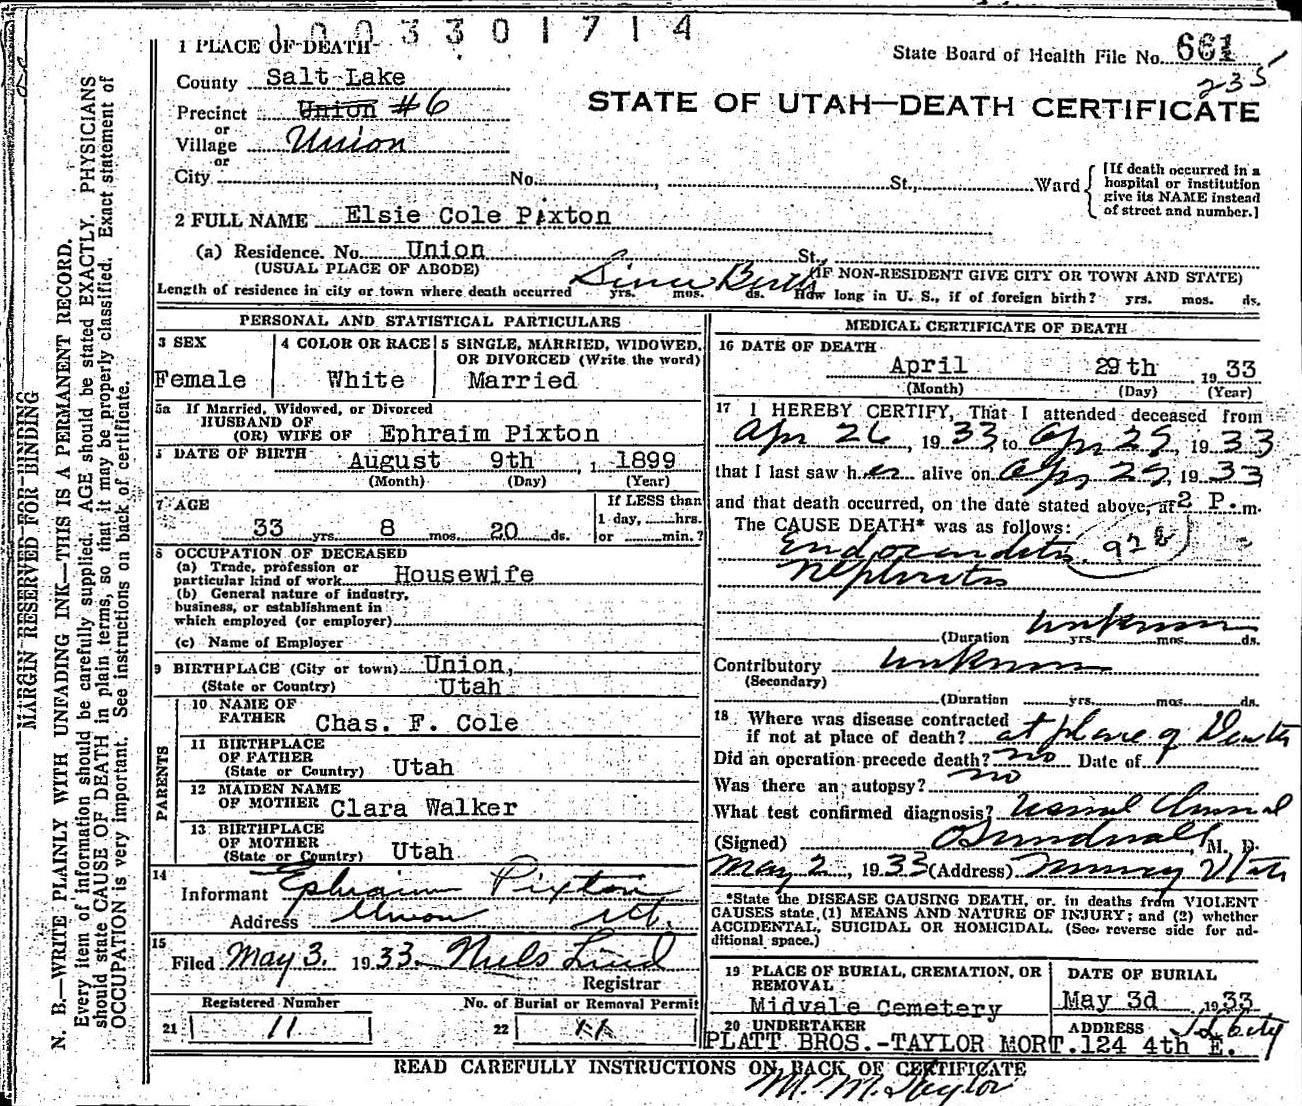 1003301714
1 PLACE OF DEATH
State Board of Health File No. 661
235
County Salt Lake
STATE OF UTAH—DEATH CERTIFICATE
Precinct Union #6
or
Village Union
or
City No. , St., Ward
[If death occurred in a hospital or institution give its NAME instead of street and number.]
2 FULL NAME Elsie Cole Pixton
(a) Residence. No. Union St.,
(USUAL PLACE OF ABODE) (IF NON-RESIDENT GIVE CITY OR TOWN AND STATE)
Length of residence in city or town where death occurred Since Birth yrs. mos. ds. How long in U. S., if of foreign birth? yrs. mos. ds.
PERSONAL AND STATISTICAL PARTICULARS
3 SEX 4 COLOR OR RACE 5 SINGLE, MARRIED, WIDOWED, OR DIVORCED (Write the word)
Female White Married
5a If Married, Widowed, or Divorced
HUSBAND OF
(OR) WIFE OF Ephraim Pixton
DATE OF BIRTH August 9th, 1899
(Month) (Day) (Year)
7 AGE If LESS than
33 yrs. 8 mos. 20 ds. 1 day, hrs.
or min.?
8 OCCUPATION OF DECEASED
(a) Trade, profession or
particular kind of work Housewife
(b) General nature of industry,
business, or establishment in
which employed (or employer)
(c) Name of Employer
9 BIRTHPLACE (City or town) Union,
(State or Country) Utah
PARENTS
10 NAME OF
FATHER Chas. F. Cole
11 BIRTHPLACE
OF FATHER
(State or Country) Utah
12 MAIDEN NAME
OF MOTHER Clara Walker
13 BIRTHPLACE
OF MOTHER
(State or Country) Utah
14
Informant Ephraim Pixton
Address Union Ut.
15
Filed May 3. 1933. Niels Lind
Registrar
Registered Number No. of Burial or Removal Permit
21 11 22 11
MEDICAL CERTIFICATE OF DEATH
16 DATE OF DEATH
April 29th 1933
(Month) (Day) (Year)
17 I HEREBY CERTIFY, That I attended deceased from
Apr 26, 1933 to Apr 29, 1933
that I last saw her alive on Apr 29, 1933
and that death occurred, on the date stated above, at 2 P.m.
The CAUSE DEATH* was as follows:
Endocarditis 92b
Nephritis
unknown
(Duration yrs. mos. ds.
Contributory unknown
(Secondary)
(Duration yrs. mos. ds.
18 Where was disease contracted
if not at place of death? at place of Death
Did an operation precede death? no Date of
Was there an autopsy? no
What test confirmed diagnosis? Usual Clinical
(Signed) , M. D.
May 2, 1933 (Address) Murray Utah
*State the DISEASE CAUSING DEATH, or, in deaths from VIOLENT
CAUSES state (1) MEANS AND NATURE OF INJURY; and (2) whether
ACCIDENTAL, SUICIDAL OR HOMICIDAL. (See reverse side for ad-
ditional space.)
19 PLACE OF BURIAL, CREMATION, OR
REMOVAL
Midvale Cemetery
DATE OF BURIAL
May 3d 1933
20 UNDERTAKER ADDRESS S L City
PLATT BROS.-TAYLOR MORT. 124 4th E.
READ CAREFULLY INSTRUCTIONS ON BACK OF CERTIFICATE
M. M. Taylor
MARGIN RESERVED FOR BINDING
N. B.—WRITE PLAINLY WITH UNFADING INK—THIS IS A PERMANENT RECORD.
Every item of information should be carefully supplied. AGE should be stated EXACTLY. PHYSICIANS
should state CAUSE OF DEATH in plain terms, so that it may be properly classified. Exact statement of
OCCUPATION is very important. See instructions on back of certificate.